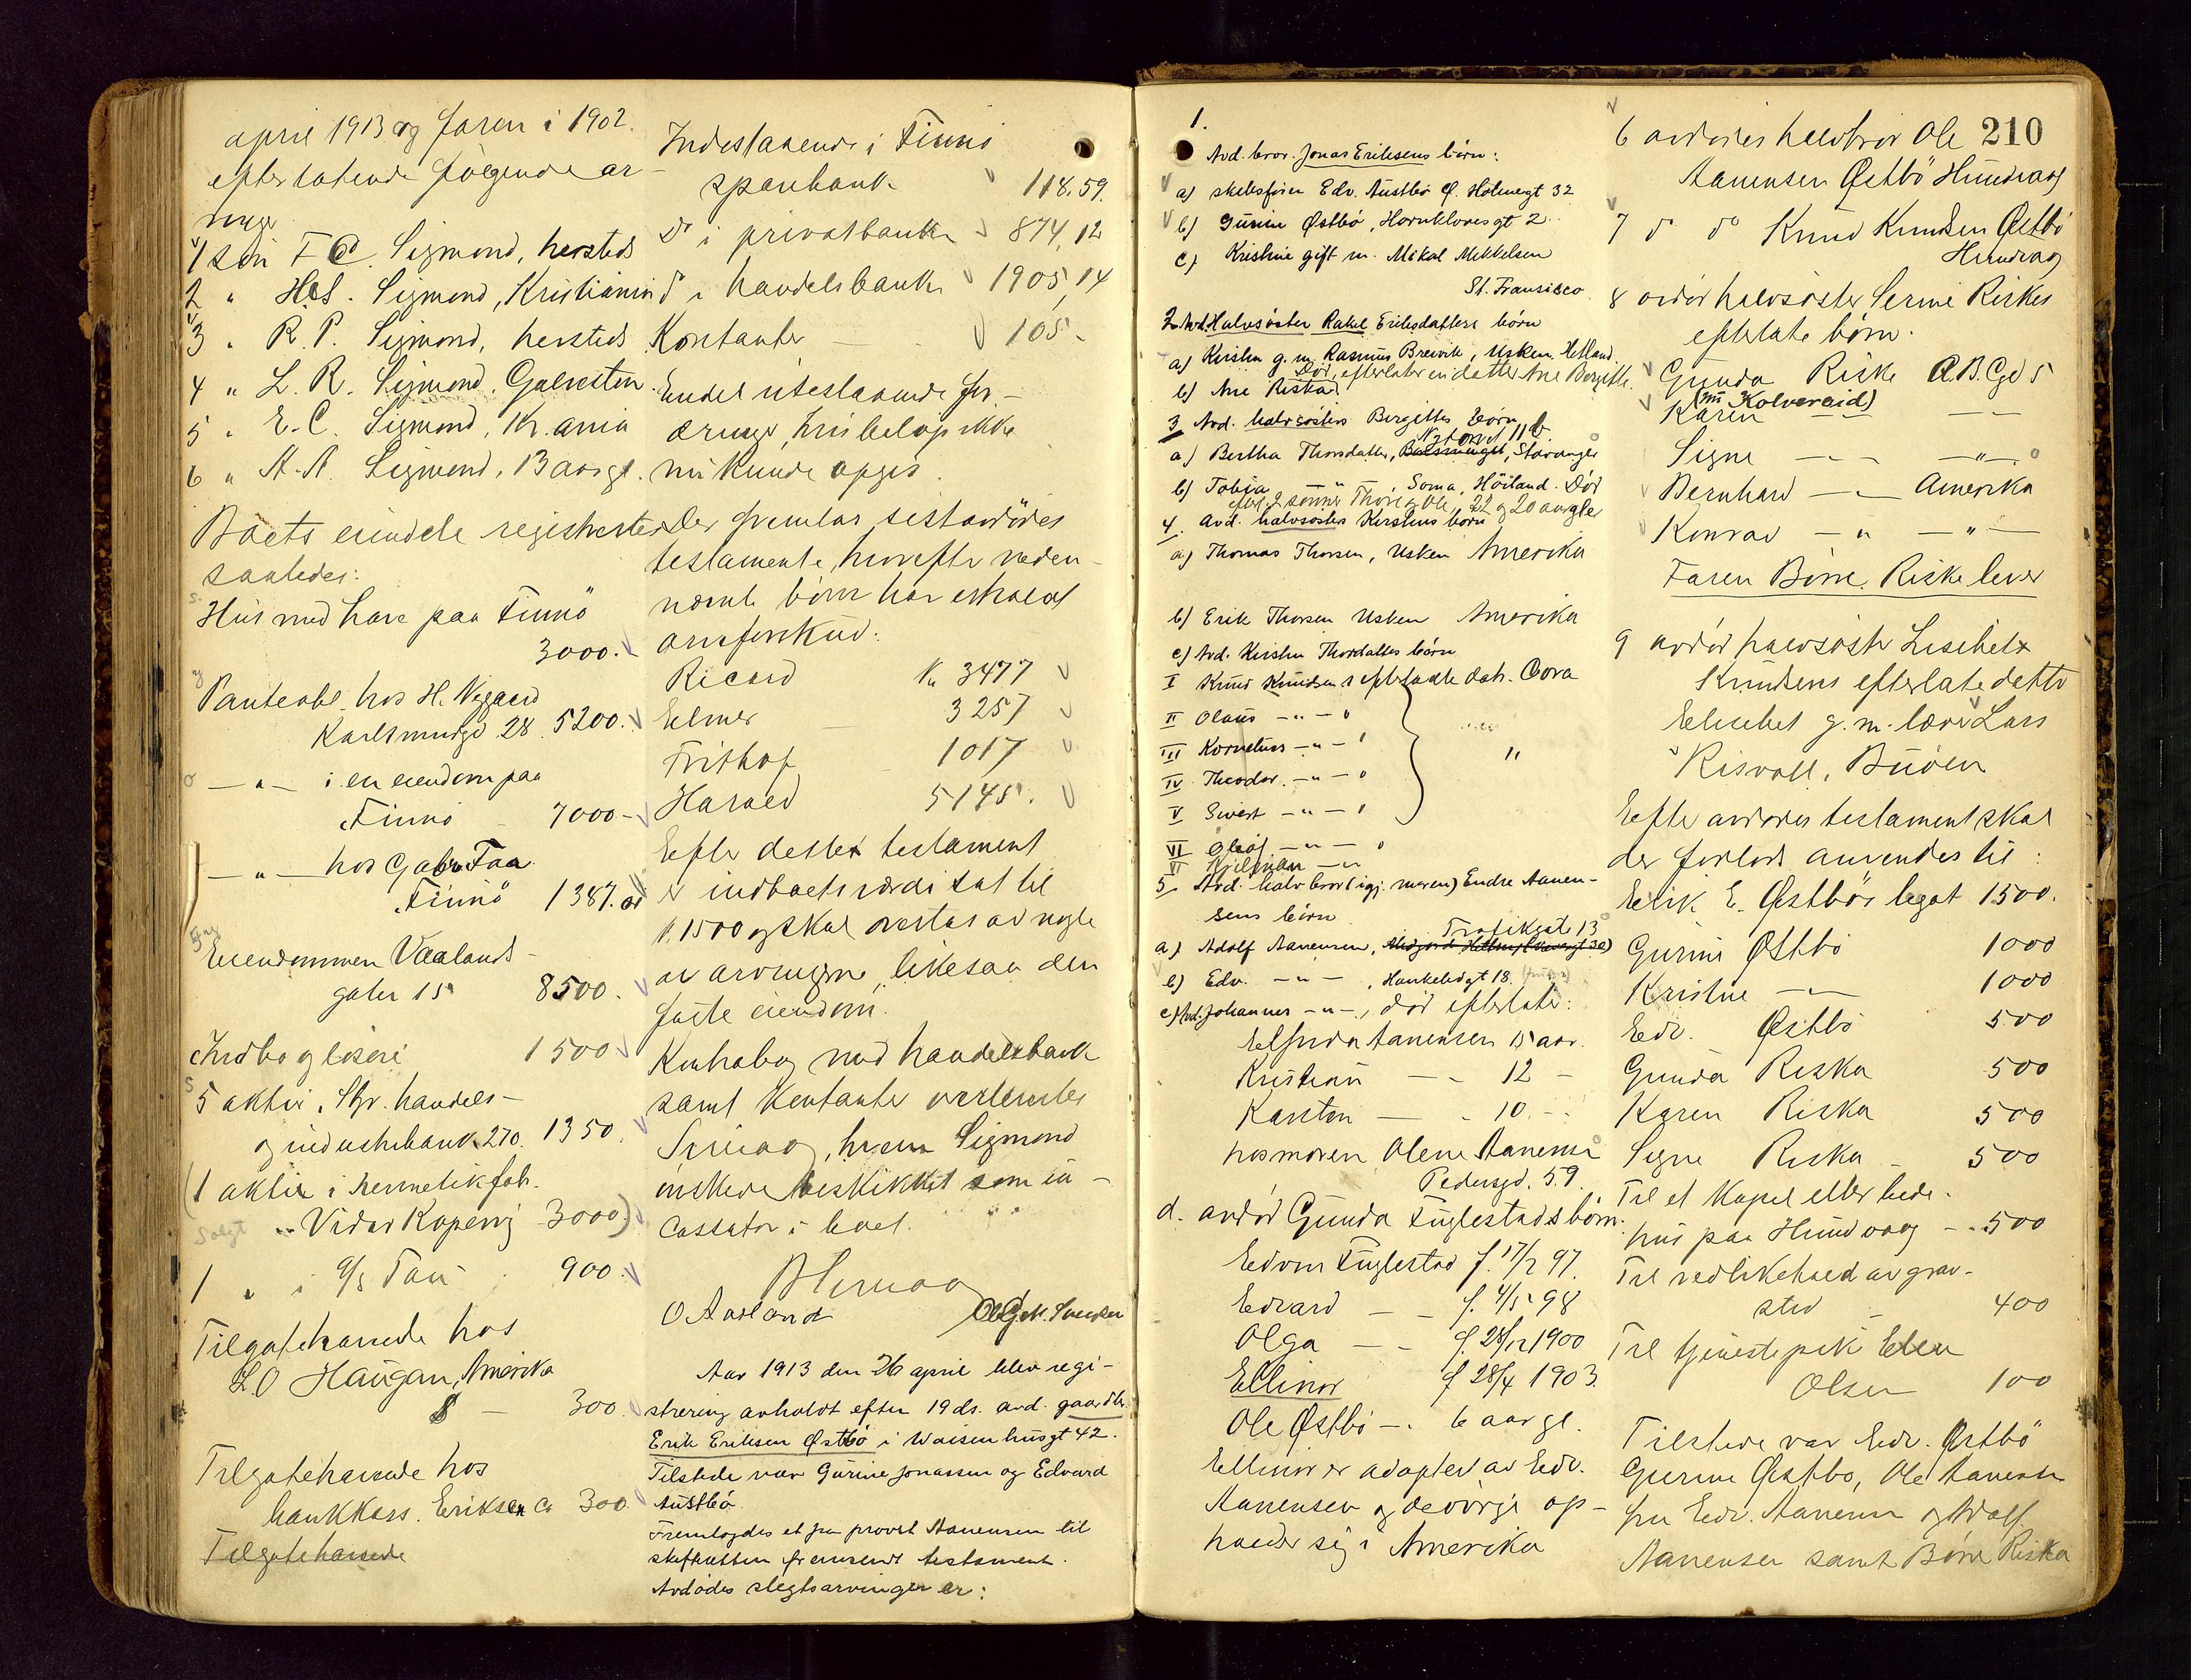 april 1913 og faren i 1902.
efterlatende følgende ar-
inger
1 søn F C. Sigmond, hersteds
2 " H. S. Sigmond, Kristiania
3 " R. P. Sigmond, hersteds
4 " L. R. Sigmond, Galveston
5 " E. C. Sigmond, Kr.ania
6 " A. A. Sigmond, 13 aargl.
Boets eiendele registrertes
saaledes:
Hus med have paa Finnö
3000.
Panteobl. hos H. Nygaard
Karlsmindegd 28. 5200.
— " — i en eiendom paa
Finnö 7000 -
— " — hos Gabr. Faa
Finnö 1387.
Eiendommen Vaalands-
gaten 15 8500.
Indbo og løsøre 1500
5 aktier i Stv. handels-
og industribank 270. 1350.
(1 aktie i hermetikfab.
Solgt "Vidar Kopervig 3000)
1 " i A/S Tau 900.
Tilgodehavende hos
L. O Haugan, Amerika
$ — 300.
Tilgodehavende hos
bankkass. Eriksen ca 300.
Tilgodehavende
Indestaaende i Finnö
sparebank 118.59.
do i privatbanken 874,12
do i handelsbanken 1905,14
Kontanter 105 -
Endel utestaaende for-
dringer, hvis beløp ikke
nu kunde opgis.
Der fremlas sistavdødes
testamente, hvorefter neden-
nævnte børn har erholdt
arveforskud:
Ricard Kr 3477
Elmer 3257
Frithof 1017
Harald 5145.
Efter dettet testament
er indboets værdi sat til
kr. 1500 og skal overtas av nogle
av arvingerne, likesaa den
faste eiendom.
Kontrabog med handelsbank
samt kontanter overlevertes
, hvem Sigmond
ønskede beskikket som in-
cassator i boet.
O Aarland
Aar 1913 den 26 april blev regi-
strering avholdt efter 19 ds. avd. gaardbr.
Erik Eriksen Østbö i Waisenhusgt 42.
Tilstede var Gurine Jonassen og Edvard
Austbö.
Fremlagdes et fra provst Aanensen til
skifteretten fremsendt testament.
Avdødes slegtsarvinger er:
1.
Avd. bror Jonas Eriksens børn:
a) skibsfører Edv. Austbö Ø. Holmegt 32
b) Gurine Østbö, Hornklovesgt 2.
c) Kristine gift m. Mikal Mikkelsen
St. Fransisco.
2. Avd. Halvsøster Rakel Eriksdatters børn
a) Kirsten g. m. Rasmus Breivik, Usken, Hetland
Død, efterlater en datter Ane Bergitte.
b) Ane Ristad
3 Avd. halvsøsters Bergittes børn
Nytorvet 11 b
a) Bertha Thorsdatter, , Stavanger
b) Tobia — " — , Soma, Höiland. Död
efterl. 2 sønner Thore og Ole, 22 og 20 aar gle
4. Avd. halvsøsters Kirstens børn
a) Thomas Thorsen, Usken Amerika
b) Erik Thorsen Usken Amerika
c) Avd. Kirsten Thordatters børn
I Knud Knudsen s efterladte datr. Dora
II Olaus — " —
III Kornelius — " — "
IV Theodor. — " —
V Sivert — " —
VI Oluf — " —
VI Hjelman — "
5. Avd. halvbror (igj. moren) Endre Aanen-
sens børn
Trafikgat 13
a) Adolf Aanensen,
b) Edv. — " — , Haukeligt 18.
c) Avd. Johannes — " — , död efterlater:
Elfrida Aanensen 15 aar.
Kristian — - 12 -
Karsten — - 10. -
hos moren Olene Aanensen
Pedersgd. 59.
d. avdød Gunda Fuglestads børn.
Edvin Fuglestad f. 17/2 97.
Edvard — - f. 4/5 98
Olga — - f. 28/12 1900
Ellinor f 28/4 1903.
Ole Østbö — . 6 aar gl.
Ellinor er adoptert av Edv.
Aanensen og de øvrige op-
holder sig i Amerika
210
6 avdødes halvbror Ole
Aanensen Østbö Hundvaag
7 do do Knud Knudsen Østbö
Hundvaag
8 avdød halvsøster Serine Riskes
efterlatte børn.
Gunda Riske A.B.C gd 5
(m Kolvereid)
Karen — —
Signe — - — " —
Bernhard — - Amerika
Konrad — " — " —
Faren Börre Riske lever
9 avdød halvsøster Lisebet
Knudsens efterlatte datter
Elisebet g. m. lærer Lars
Risvoll, Buöen
Efter avdødes testament skal
der forlods anvendes til:
Erik E. Østbö's legat 1500.
Gurine Østbö 1000
Kristine — - 1000
Edv. Østbö 500
Gunda Riska 500
Karen Riska 500
Signe Riska - 500
Til et kapel eller bede-
hus paa Hundvaag - 500
Til vedlikehold av grav-
sted 400
Til tjenestepike Elen
Olsen 100
Tilstede var Edv. Østbö
Gurine Østbö, Ole Aanensen
fru Edv. Aanensen og Adolf
Aanensen samt Börre Riska